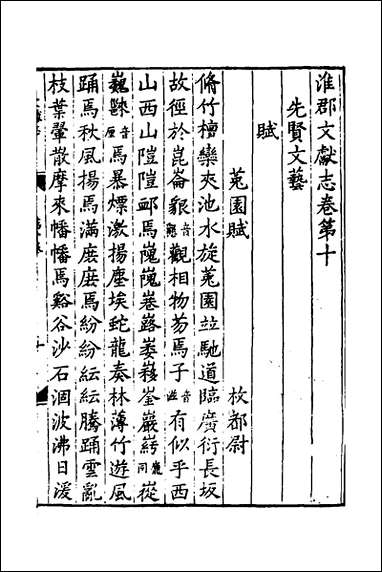 淮郡文獻志卷第十
先賢文藝
賦
菟園賦 枚都尉
脩竹檀欒夾池水旋菟園竝馳道臨廣衍長坂
故徑於崑崙㒵音觀觀相物芴焉子音茲有似乎西
山西山隑隑䣀焉巍巍巷路崣䅬崟巖崿音鹿同嵸
巍𣤯音厘焉暴熛激揚塵埃蛇龍奏林薄竹遊風
踊焉秋風揚焉滿庶庶焉紛紛紜紜騰踊雲亂
枝葉翬散摩來幡幡焉谿谷沙石涸波沸日湲